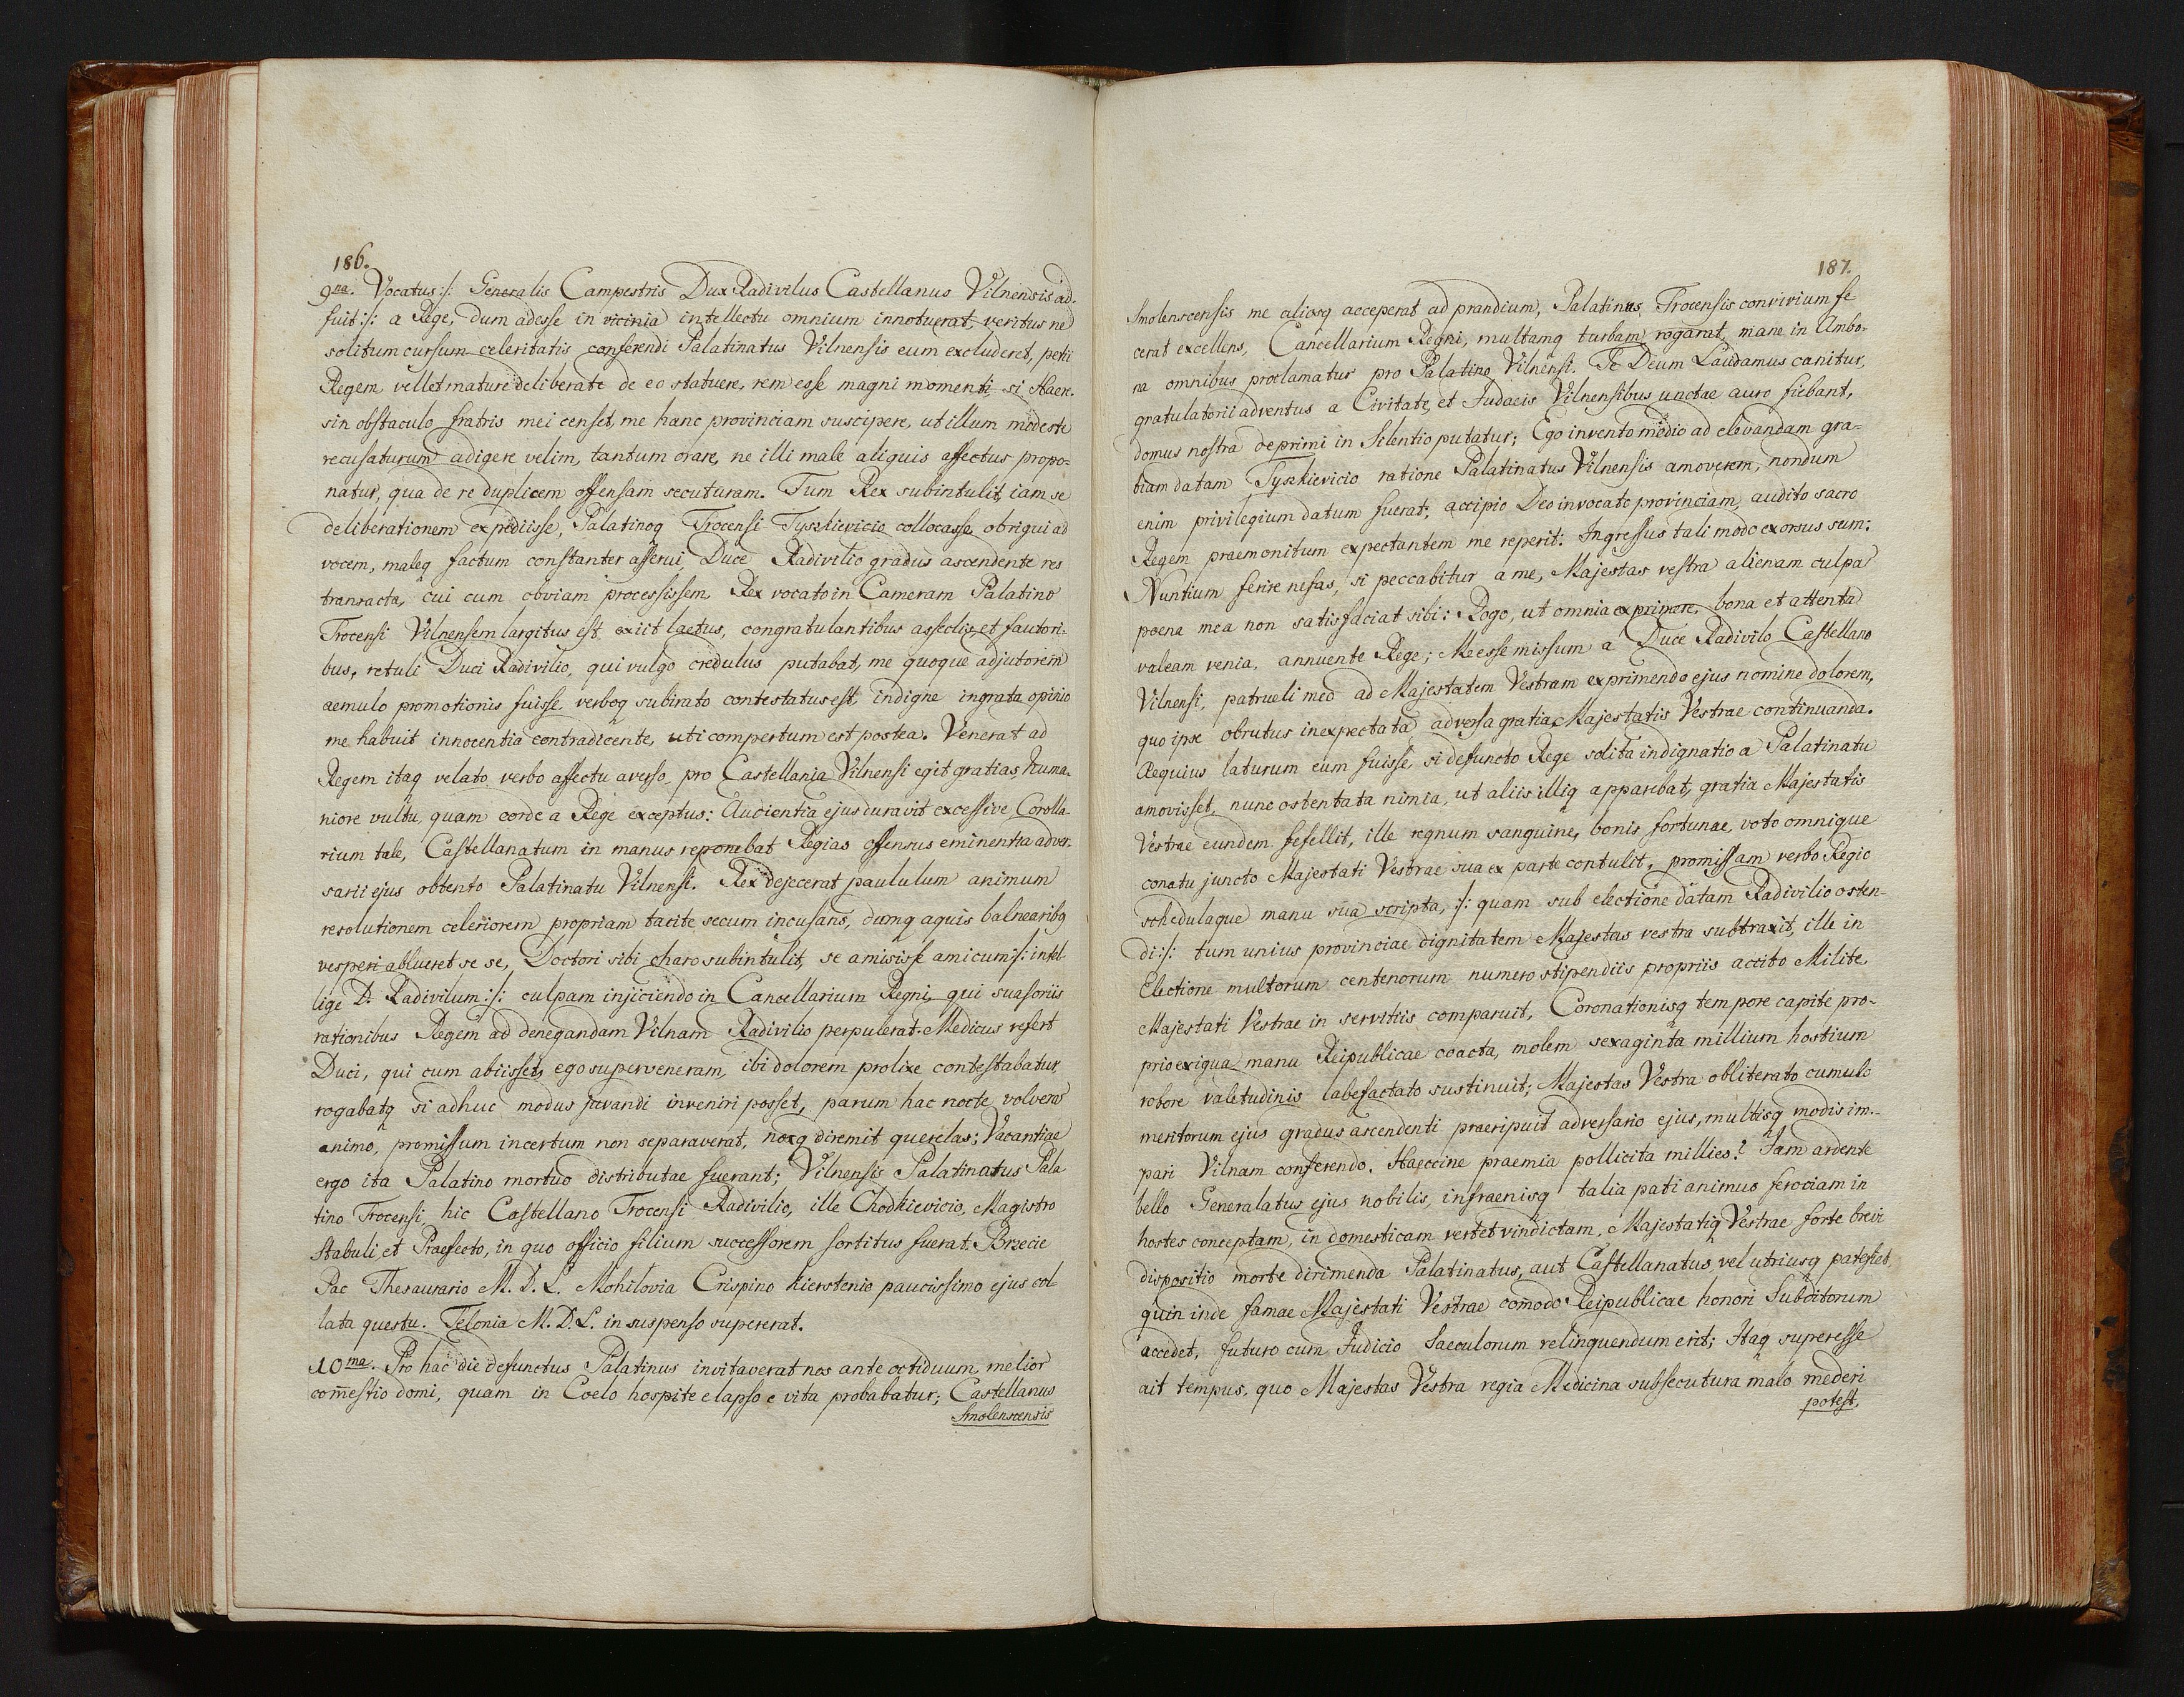 186.
9na. Vocatus :/: Generalis Campestris Dux Radivilus Castellanus Vilnensis ad-
fuit :/: a Rege, dum adesse in vicinia intellectu omnium innotuerat, veritus ne
solitum cursum celeritatis conferendi Palatinatus Vilnensis eum excluderet, petii
Regem vellet mature deliberate de eo statuere, rem esse magni momenti, si Haere-
sin obstaculo fratris mei censet, me hanc provinciam suscipere, ut illum modeste
recusaturum adigere velim, tantum orare, ne illi male aliquis affectus propo-
natur, qua de re duplicem offensam secuturam. Tum Rex subintulit, iam se
deliberationem expediisse, Palatinoq Trocensi Tyszkievicio collocasse, obrigui ad
vocem, maleq factum constanter asserui, Duce Radivilio gradus ascendente res
transacta, cui cum obviam processissem, Rex vocato in Cameram Palatino
Trocensi Vilnensem largitus est, exiit laetus, congratulantibus asseclis, et fautori-
bus, retuli Duci Radivilio, qui vulgo credulus putabat, me quoque adjutorem
aemulo promotionis fuisse, verboq subirato contestatus est, indigne ingrata opinio
me habuit innocentia contradicente, uti compertum est postea. Venerat ad
Regem itaq velato verbo affectu averso, pro Castellania Vilnensi egit gratias, huma-
niore vultu, quam corde a Rege exceptus: Audientia ejus duravit excessive, Corolla-
rium tale, Castellanatum in manus reponebat Regias offensus eminentia adver-
sarii ejus obtento Palatinatu Vilnensi. Rex dejecerat paululum animum
resolutionem celeriorem propriam tacite secum incusans, dumq aquis balnearibq
vesperi ablueret se se, Doctori sibi charo subintulit, se amisisse amicum :/: intel-
lige D. Radivilum :/: culpam injiciendo in Cancellarium Regni, qui suasoriis
rationibus Regem ad denegandam Vilnam Radivilio perpulerat. Medicus refert
Duci, qui cum abiisset, ego superveneram, ibi dolorem prolixe contestabatur,
rogabatq si adhuc modus juvandi inveniri posset, parum hac nocte volvens
animo, promissum incertum non separaverat, noxq diremit querelas; Vacantiae
ergo ita Palatino mortuo distributae fuerant; Vilnensis Palatinatus Pala
tino Trocensi, hic Castellano Trocensi Radivilio, ille Chodkievicio, Magistro
Stabuli et Praefecto, in quo officio filium successorem sortitus fuerat. Brzecie
Pac Thesaurario M. D. L. Mohilovia Crispino Kierstenio paucissimo ejus col
lata questu. Telonia M. D. L. in suspenso supererat.
10ma. Pro hac die defunctus Palatinus invitaverat nos ante octiduum, melior
com̄estio domi, quam in Coelo hospite elapso e vita probabatur; Castellanus
Smolenscensis
187.
Smolenscensis me aliosq acceperat ad prandium, Palatinus Trocensis convivium fe
cerat excellens, Cancellarium Regni, multamq turbam rogarat, mane in Ambo-
na omnibus proclamatur pro Palatino Vilnensi. Te Deum Laudamus canitur,
gratulatorii adventus a Civitate, et Judaeis Vilnensibus unctae auro fiebant,
domus nostra deprimi in Silentio putatur; Ego invento medio ad elevandam gra-
tiam datam Tyszkievicio ratione Palatinatus Vilnensis amoverem, nondum
enim privilegium datum fuerat, accipio Deo invocato provinciam, audito sacro
Regem praemonitum expectantem me reperit: Ingressus tali modo exorsus sum:
Nuntium ferire nefas, si peccabitur a me, Majestas vestra alienam culpa
poena mea non satisfaciat sibi: Rogo, ut omnia exprimere, bona et attenta
valeam venia, annuente Rege; Me esse missum a Duce Radivilo Castellano
Vilnensi, patrueli meo ad Majestatem Vestram exprimendo ejus nomine dolorem,
quo ipse obrutus inexpectata, adversa gratia Majestatis Vestrae continuanda.
Aequius laturum eum fuisse, si defuncto Rege solita indignatio a Palatinatu
amovisset, nunc ostentata nimia, ut aliis illiq apparebat, gratia Majestatis
Vestrae eundem fefellit, ille regnum sanguine, bonis fortunae, voto omnique
conatu juncto Majestati Vestrae sua ex parte contulit, promissam verbo Regio
schedulaque manu sua scripta, :/: quam sub electione datam Radivilio osten-
di :/: tum unius provinciae dignitatem Majestas vestra subtraxit, ille in
Electione multorum centenorum numero stipendiis propriis accito Milite,
Majestati Vestrae in servitiis comparuit, Coronationisq tempore capite pro-
prio exigua manu Reipublicae coacta, molem sexaginta millium hostium
robore valetudinis labefactato sustinuit; Majestas Vestra obliterato cumulo
meritorum ejus gradus ascendenti praeripuit adversario ejus, multisq modis im-
pari Vilnam conferendo. Haeccine praemia pollicita millies? Iam ardente
bello Generalatus ejus nobilis, infraenisq talia pati animus ferociam in
hostes conceptam, in domesticam vertet vindictam, Majestatiq Vestrae forte brevi
dispositio morte dirimenda Palatinatus, aut Castellanatus, vel utriusq patefiet,
quin inde famae Majestati Vestrae com̄odo Reipublicae honori Subditorum
accedet, futuro cum Judicio Saeculorum relinquendum erit; Itaq superesse
ait tempus, quo Majestas Vestra regia Medicina subsecutura malo mederi
potest.